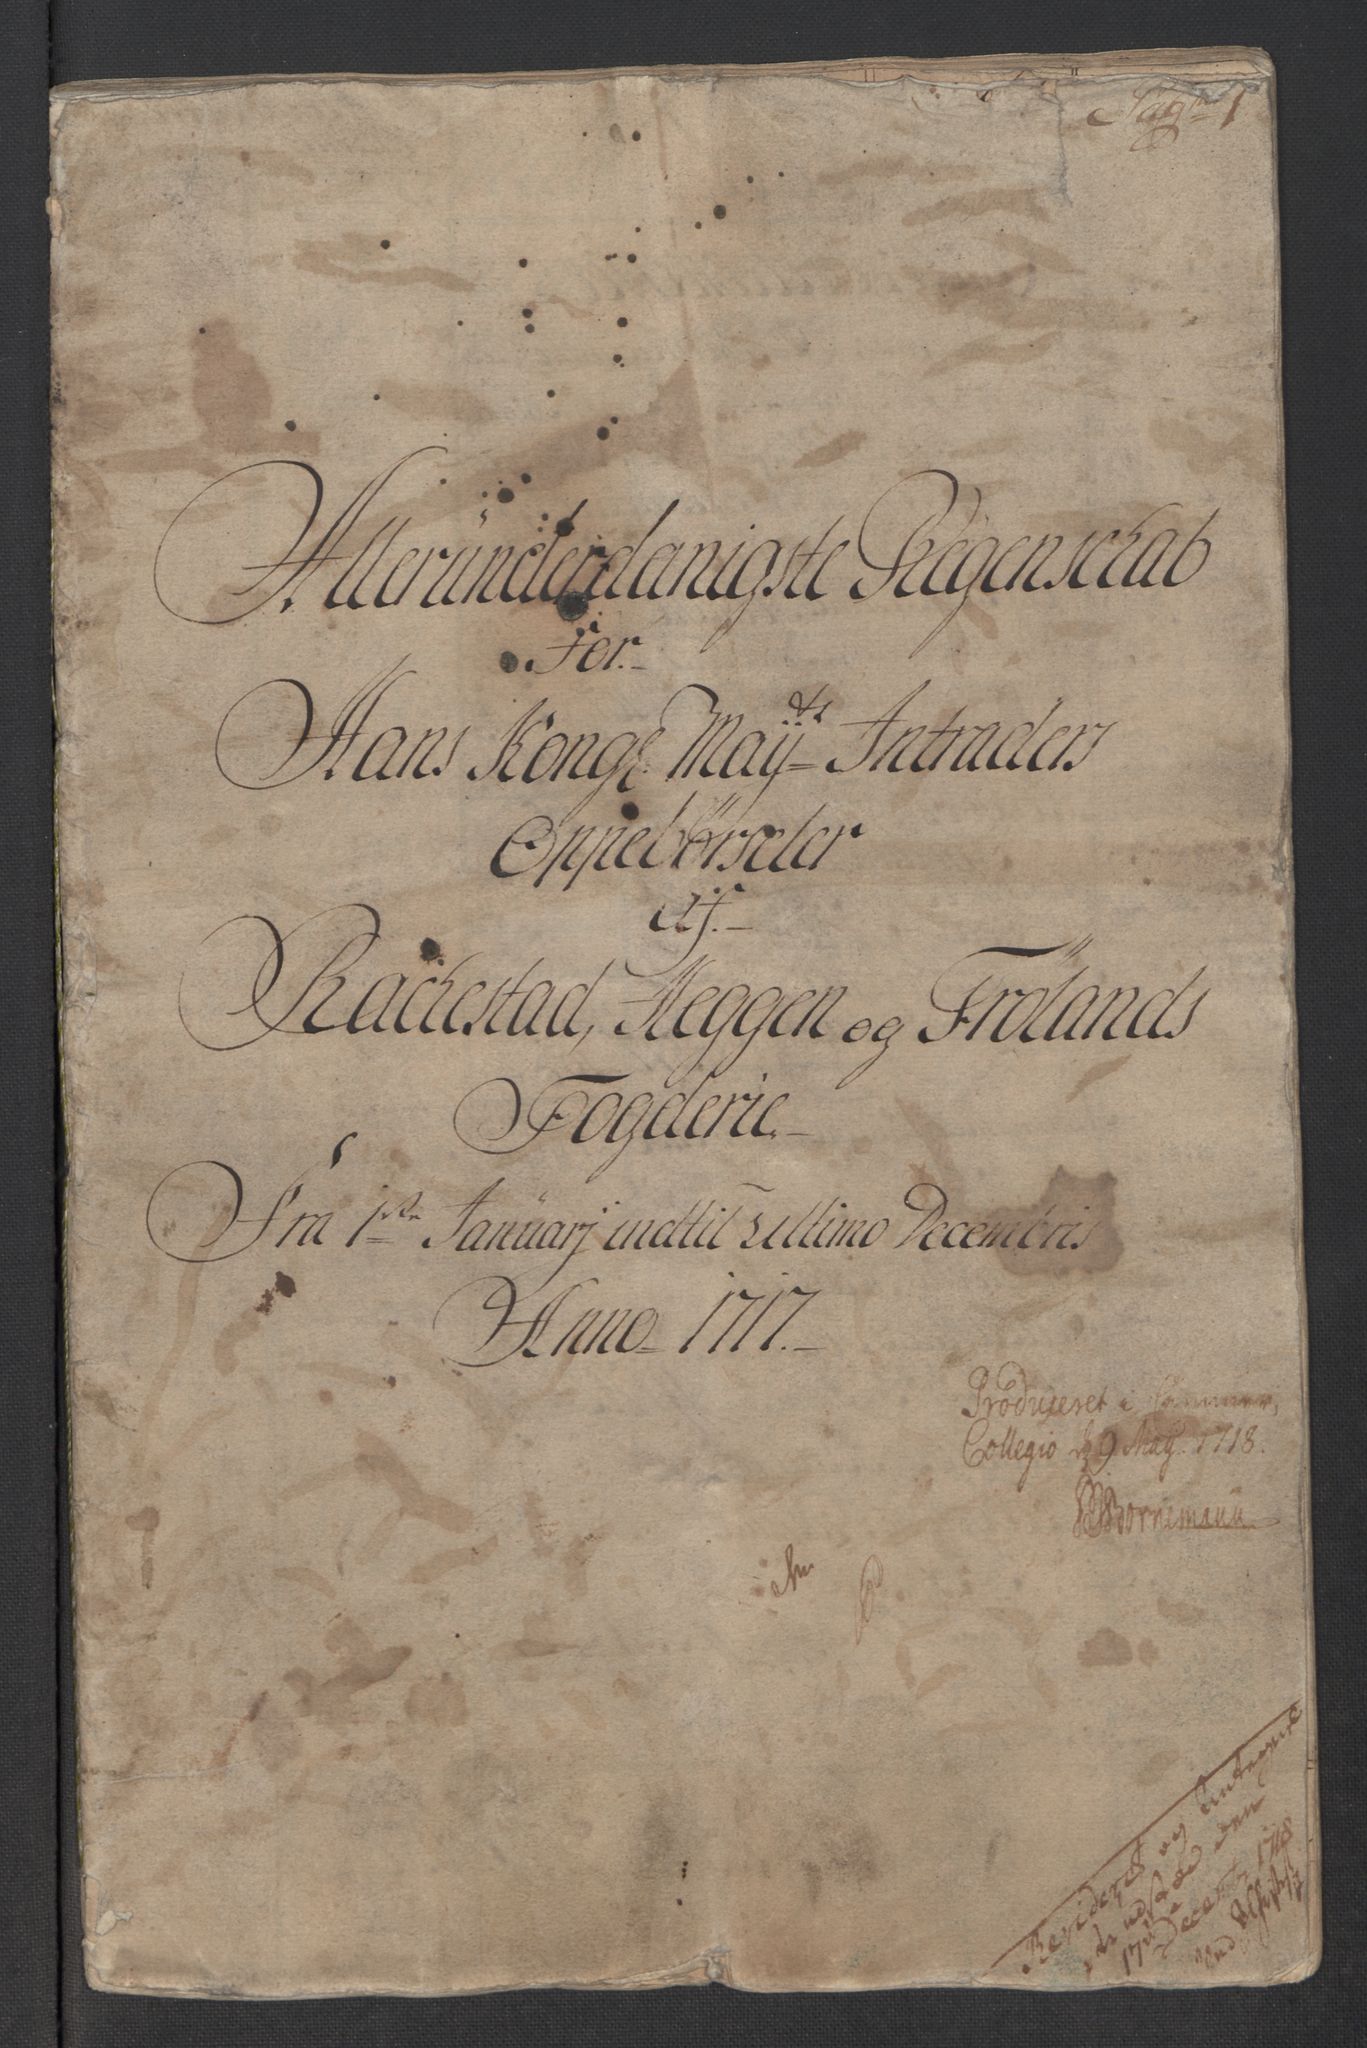 Pag: 1
Alleründerdanigste Regenskab
For.
Hans Kongl. Mayts Intraders
Oppebörseler
Af.
Rackestad, Heggen og Frölands
Fogderie.
Fra 1ste Januarj indtil Ultimo Decembris
Anno 1717.
Produceret i Cammer,
Collegio d 9 May. 1718.
Bornemann
Revideret og
den
17de Decemb 1718